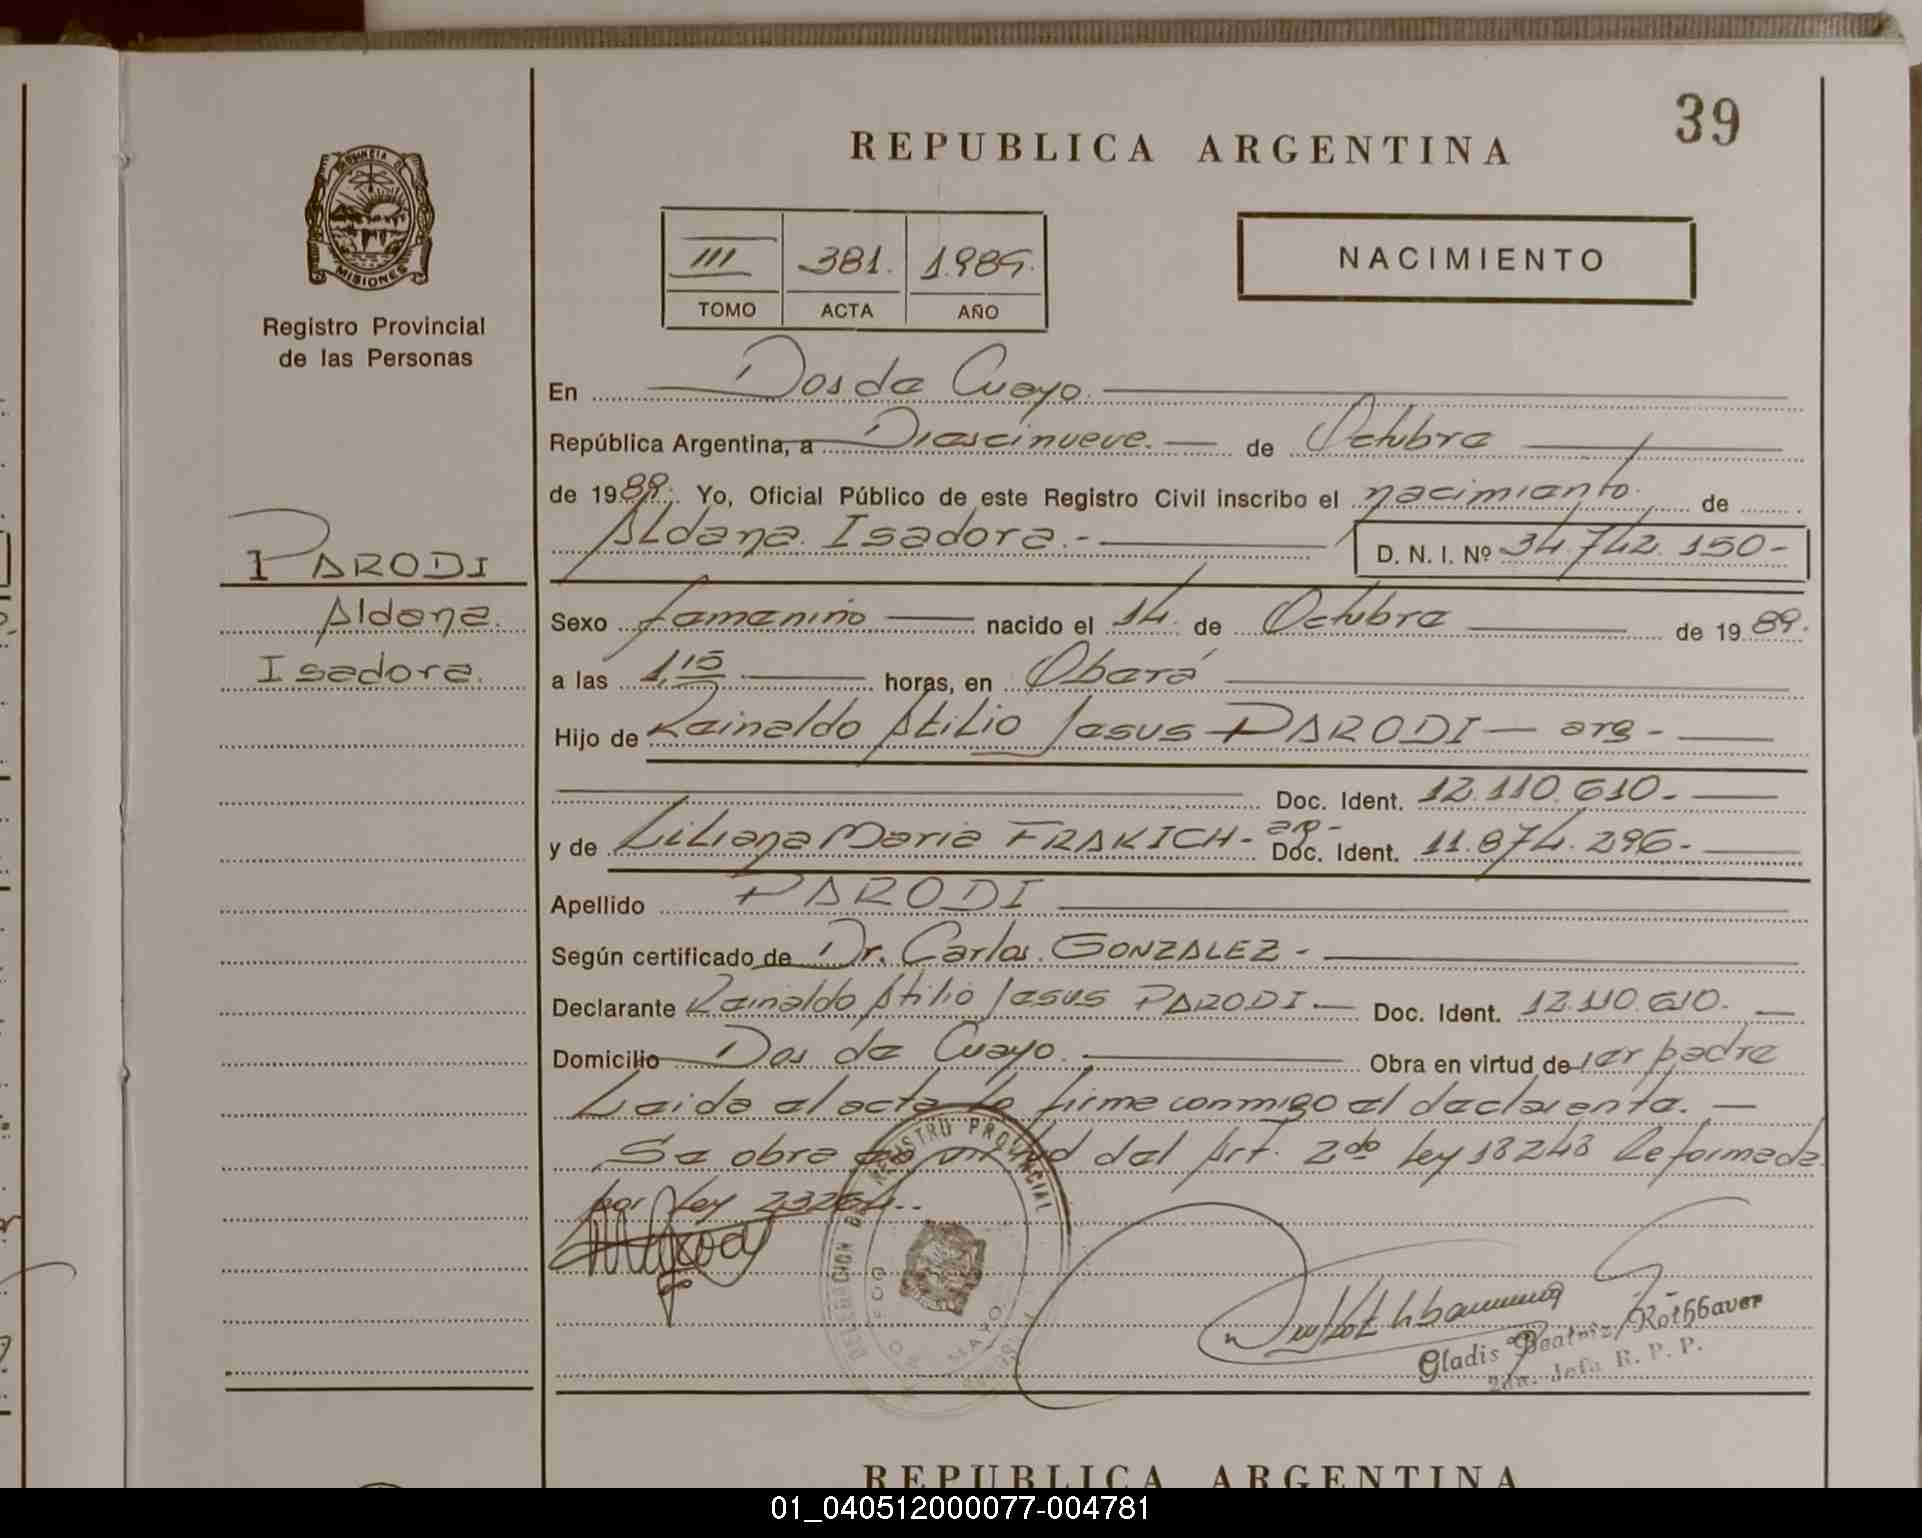 39
REPUBLICA ARGENTINA
PROVINCIA DE
MISIONES
Registro Provincial
de las Personas
III 381. 1.989.
TOMO ACTA AÑO
NACIMIENTO
En Dos de Mayo.
República Argentina, a Diescinueve. de Octubre
de 1989. Yo, Oficial Público de este Registro Civil inscribo el nacimiento. de
Aldana Isadora.- D. N. I. Nº 34.742.150-
1 PARODI
Aldana
Isadora.
Sexo femenino nacido el 14. de Octubre de 1989.
a las 1,15 horas, en Oberá
Hijo de Reinaldo Atilio Jesus PARODI - arg -
Doc. Ident. 12.110.610.-
y de Liliana Maria FRAKICH - ar- Doc. Ident. 11.874.296-
Apellido PARODI
Según certificado de Dr. Carlos GONZALEZ -
Declarante Reinaldo Atilio Jesus PARODI - Doc. Ident. 12.110.610.
Domicilio Dos de Mayo. Obra en virtud de ser padre
Leida el acta la firma conmigo el declarente. -
Se obra en virtud del Art. 2do Ley 18248 Reformada
por Ley 23264..
DELEGACION DE REGISTRO PROVINCIAL
MAYO
Gladis Beatriz Rothbauer
2da. Jefa R. P. P.
REPUBLICA ARGENTINA
01_040512000077-004781